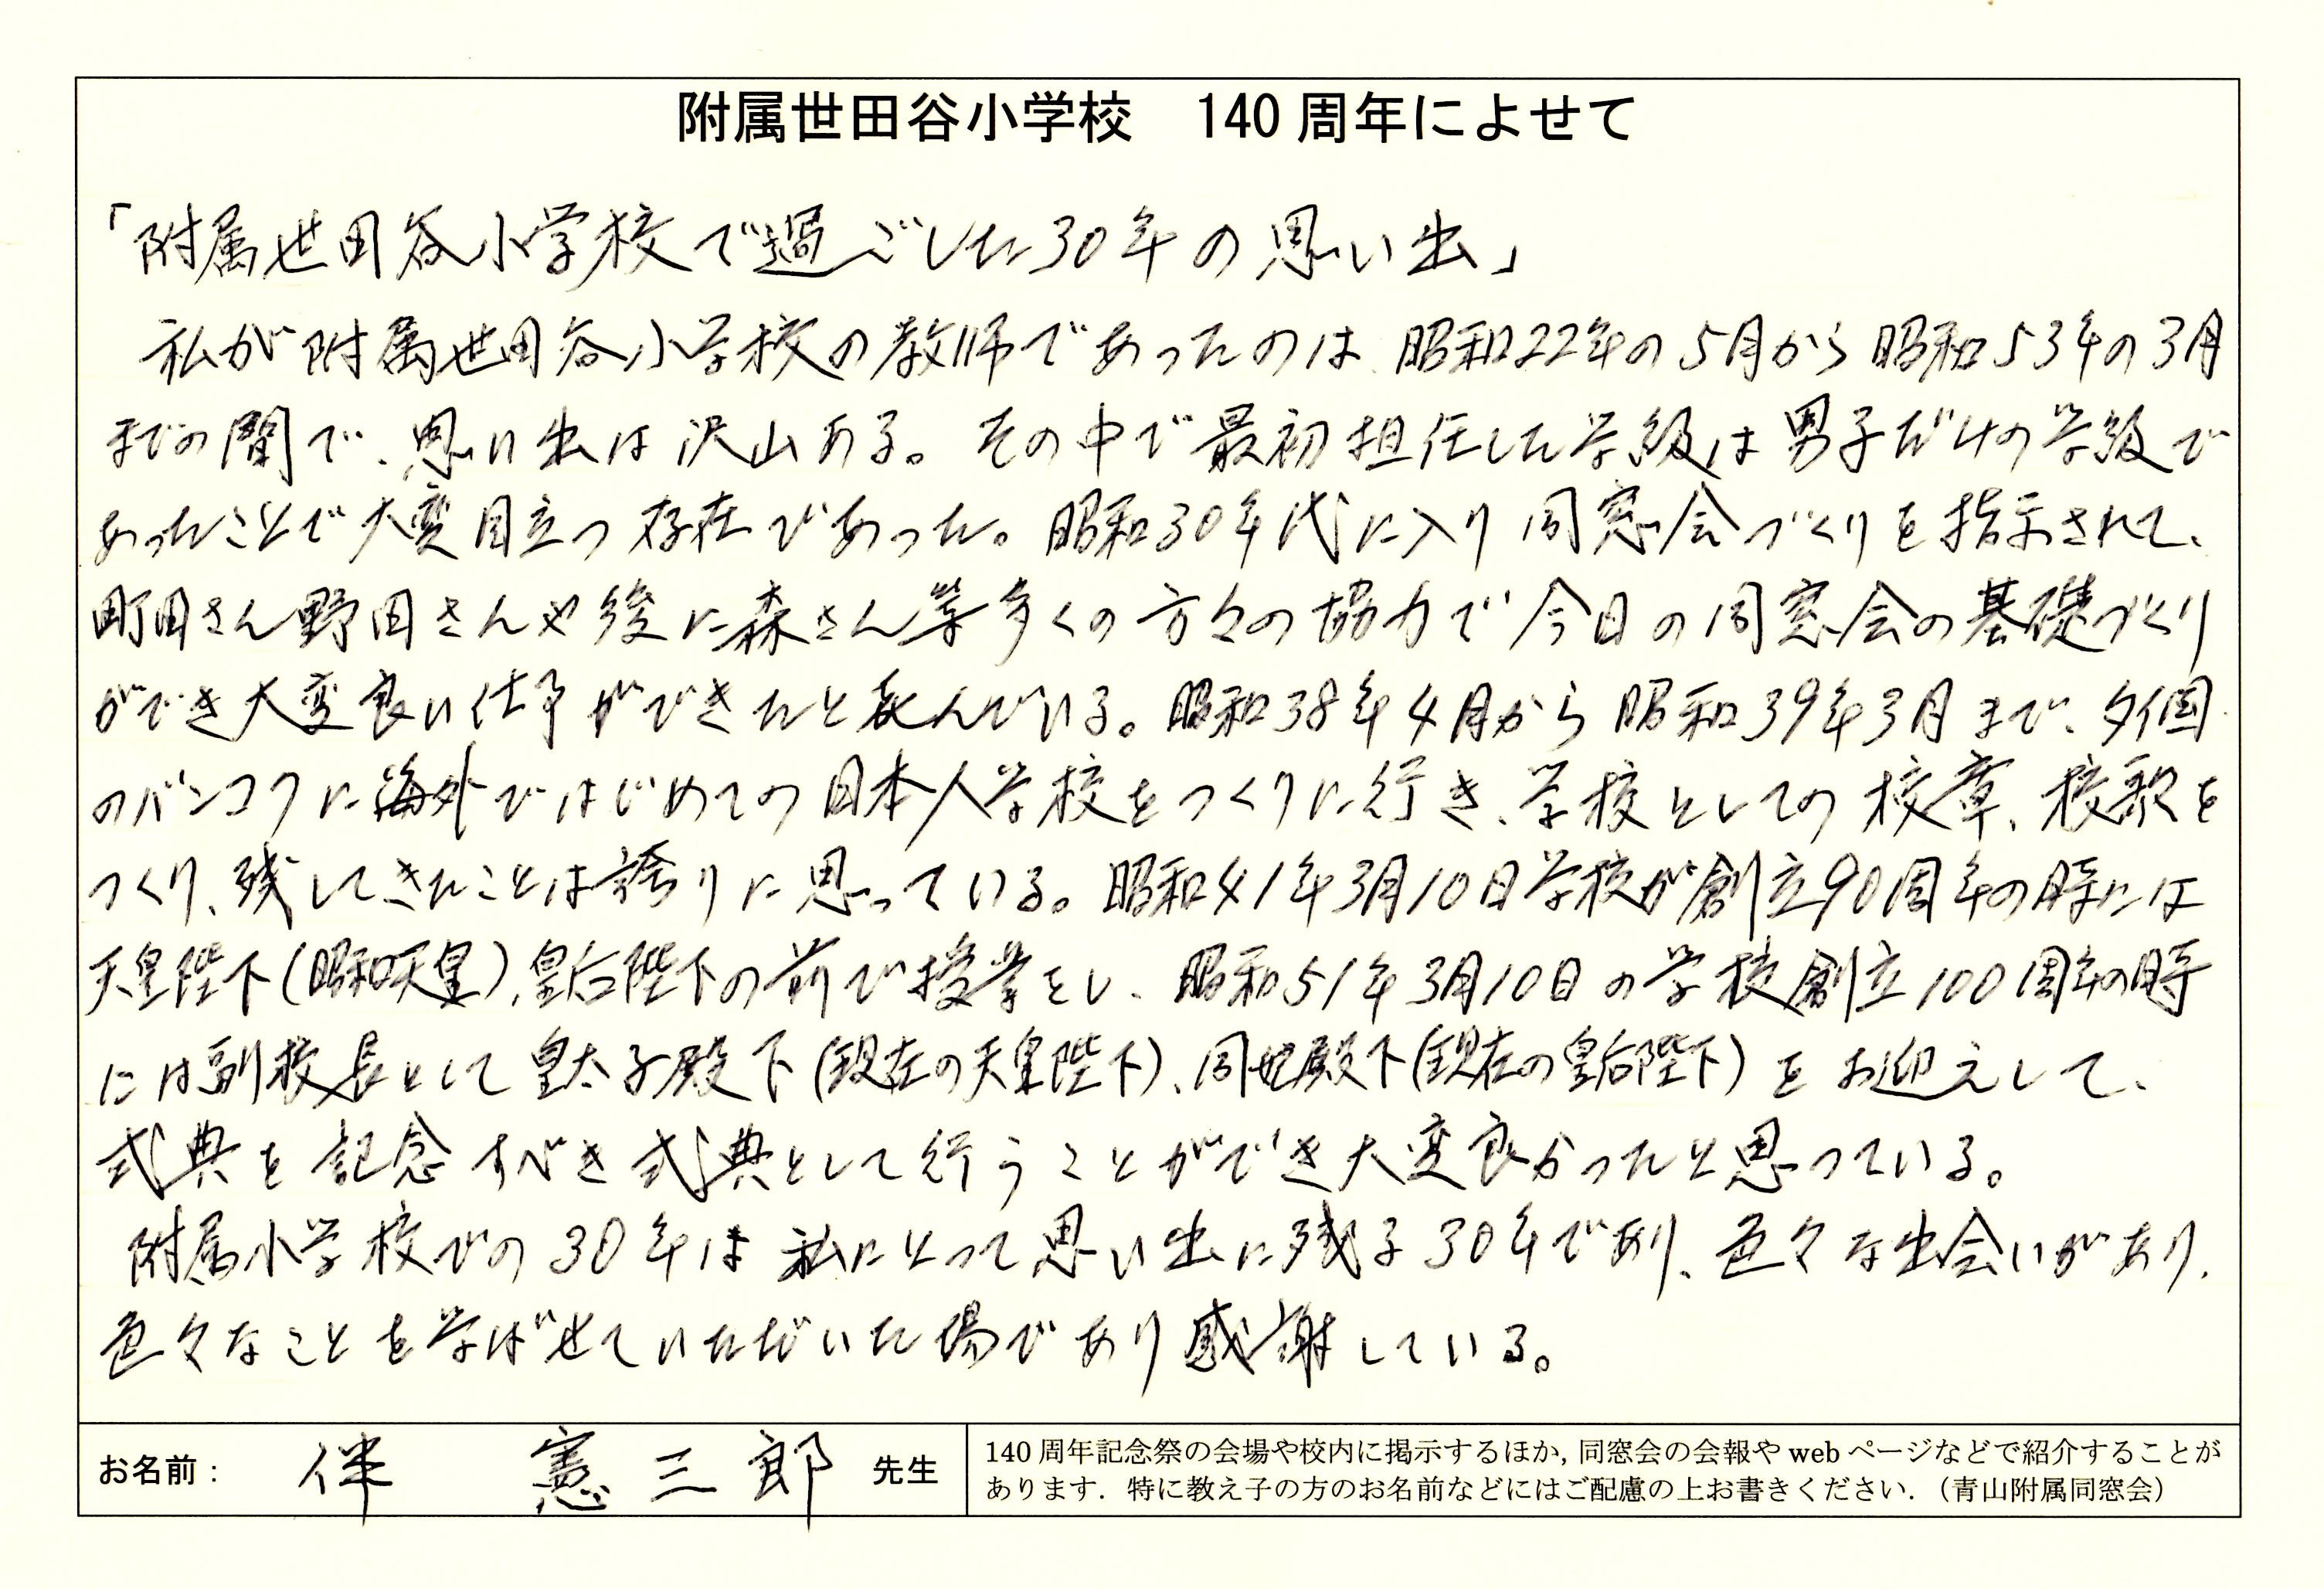 附属世田谷小学校　140周年によせて
「附属世田谷小学校で過ごした30年の思い出」
私が附属世田谷小学校の教師であったのは昭和22年の5月から昭和53年の3月
までの間で、思い出は沢山ある。その中で最初担任した学級は男子だけの学級で
あったことで大変目立つ存在であった。昭和30年代に入り同窓会づくりを指示されて、
町田さん野田さんや後に森さん等多くの方々の協力で今日の同窓会の基礎づくり
ができ大変良い仕事ができたと喜んでいる。昭和38年4月から昭和39年3月まで、タイ国
のバンコクに海外ではじめての日本人学校をつくりに行き、学校としての校章、校歌を
つくり、残してきたことは誇りに思っている。昭和41年3月10日学校が創立90周年の時には
天皇陛下(昭和天皇)、皇后陛下の前で授業をし、昭和51年3月10日の学校創立100周年の時
には副校長として皇太子殿下(現在の天皇陛下)、同妃殿下(現在の皇后陛下)をお迎えして、
式典を記念すべき式典として行うことができ大変良かったと思っている。
附属小学校での30年は私にとって思い出に残る30年であり、色々な出会いがあり、
色々なことを学ばせていただいた場であり感謝している。
お名前：　伴　憲三郎　先生
140周年記念祭の会場や校内に掲示するほか，同窓会の会報やwebページなどで紹介することが
あります．特に教え子の方のお名前などにはご配慮の上お書きください．（青山附属同窓会）